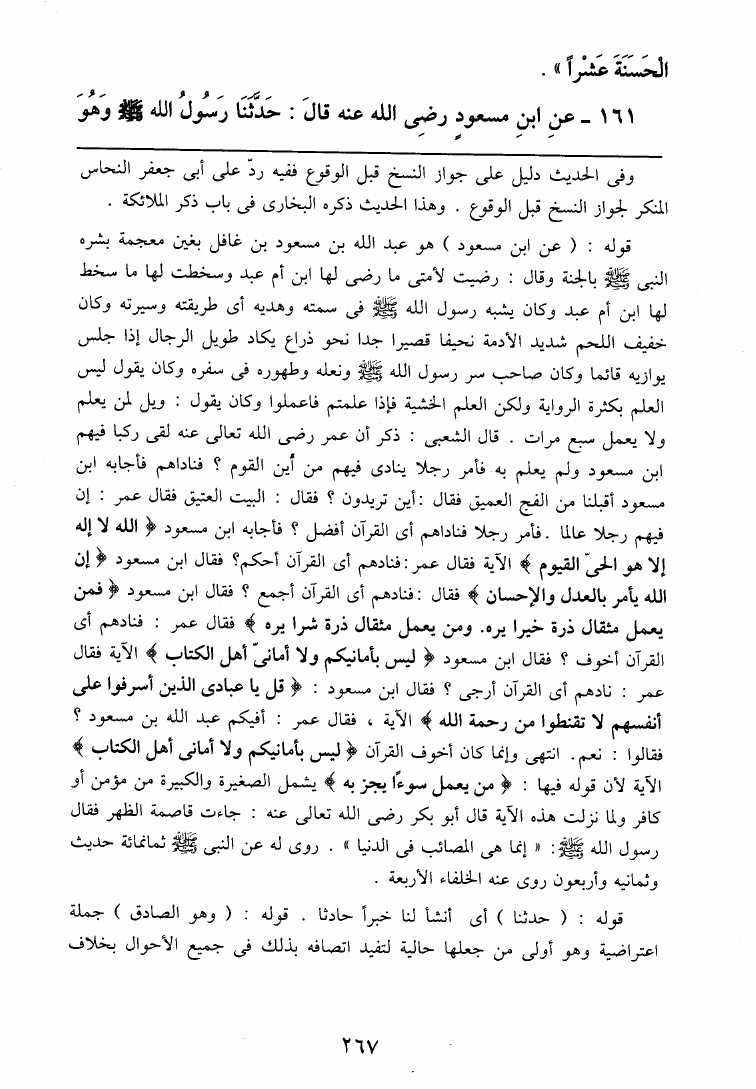 الْحَسَنَةَ عَشْراً » .
١٦١ ـ عنِ ابنِ مسعودٍ رضِى الله عنه قالَ : حَدَّثَنَا رَسُولُ الله ﷺ وَهُوَ
وفى الحديث دليل على جواز النسخ قبل الوقوع ففيه ردّ على أبى جعفر النحاس
المنكر لجواز النسخ قبل الوقوع . وهذا الحديث ذكره البخارى فى باب ذكر الملائكة .
قوله : ( عن ابن مسعود ) هو عبد الله بن مسعود بن غافل بغين معجمة بشره
النبى ﷺ بالجنة وقال : رضيت لأمتى ما رضى لها ابن أم عبد وسخطت لها ما سخط
لها ابن أم عبد وكان يشبه رسول الله ﷺ فى سمته وهديه أى طريقته وسيرته وكان
خفيف اللحم شديد الأدمة نحيفا قصيرا جدا نحو ذراع يكاد طويل الرجال إذا جلس
يوازيه قائما وكان صاحب سر رسول الله ﷺ ونعله وطهوره فى سفره وكان يقول ليس
العلم بكثرة الرواية ولكن العلم الخشية فإذا علمتم فاعملوا وكان يقول : ويل لمن يعلم
ولا يعمل سبع مرات . قال الشعبى : ذكر أن عمر رضى الله تعالى عنه لقى ركبا فيهم
ابن مسعود ولم يعلم به فأمر رجلا ينادى فيهم من أين القوم ؟ فناداهم فأجابه ابن
مسعود أقبلنا من الفج العميق فقال :أين تريدون ؟ فقال : البيت العتيق فقال عمر : إن
فيهم رجلا عالما .فأمر رجلا فناداهم أى القرآن أفضل ؟ فأجابه ابن مسعود ﴿ الله لا إله
إلا هو الحىّ القيوم ﴾ الآية فقال عمر:فنادهم أى القرآن أحكم؟ فقال ابن مسعود ﴿ إن
الله يأمر بالعدل والإحسان ﴾ فقال :فنادهم أى القرآن أجمع ؟ فقال ابن مسعود ﴿ فمن
يعمل مثقال ذرة خيرا يره. ومن يعمل مثقال ذرة شرا يره ﴾ فقال عمر : فنادهم أى
القرآن أخوف ؟ فقال ابن مسعود ﴿ ليس بأمانيكم ولا أمانىّ أهل الكتاب ﴾ الآية فقال
عمر : نادهم أى القرآن أرجى ؟ فقال ابن مسعود : ﴿ قل يا عبادى الذين أسرفوا على
أنفسهم لا تقنطوا من رحمة الله ﴾ الآية ، فقال عمر : أفيكم عبد الله بن مسعود ؟
فقالوا : نعم. انتهى وإنما كان أخوف القرآن ﴿ ليس بأمانيكم ولا أمانى أهل الكتاب ﴾
الآية لأن قوله فيها : ﴿ من يعمل سوءًا يجز به ﴾ يشمل الصغيرة والكبيرة من مؤمن أو
كافر ولما نزلت هذه الآية قال أبو بكر رضى الله تعالى عنه : جاءت قاصمة الظهر فقال
رسول الله ﷺ: « إنما هى المصائب فى الدنيا » . روى له عن النبى ﷺ ثمانمائة حديث
وثمانيه وأربعون روى عنه الخلفاء الأربعة .
قوله : ( حدثنا ) أى أنشأ لنا خبراً حادثا . قوله : ( وهو الصادق ) جملة
اعتراضية وهو أولى من جعلها حالية لتفيد اتصافه بذلك فى جميع الأحوال بخلاف
٢٦٧